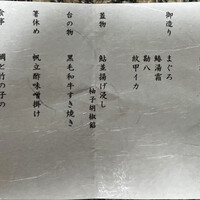 御造り　まぐろ
湯霜
勘八
紋甲イカ
蓋物　鮎並揚げ浸し
柚子胡椒餡
台の物　黒毛和牛すき焼き
箸休め　帆立酢味噌掛け
食事　鯛と竹の子の